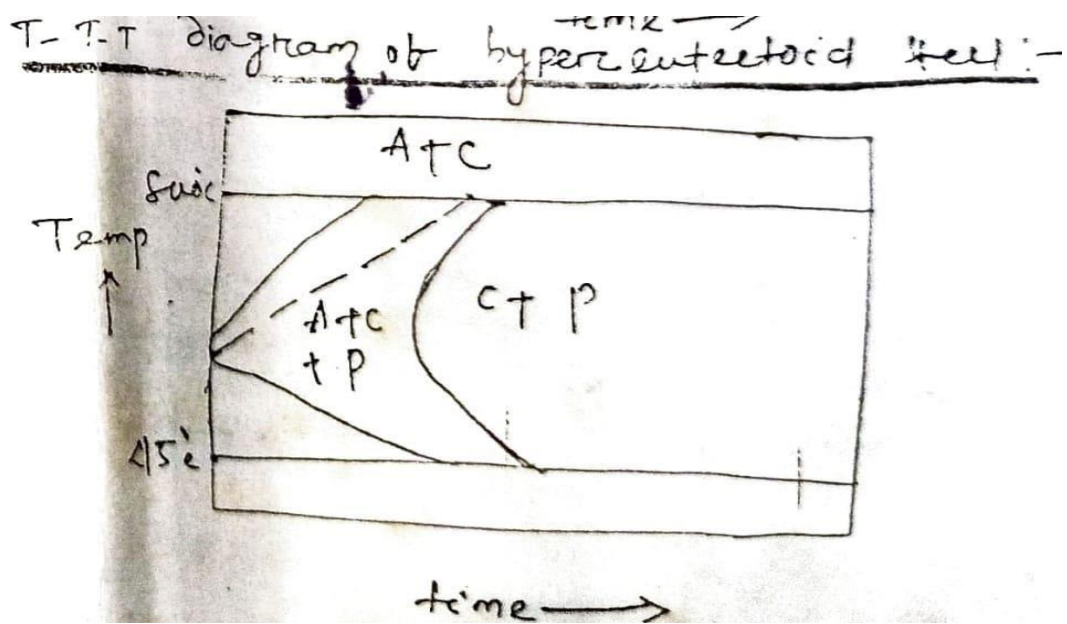 time
T-T-T diagram of hypereutectoid steel :-
A+C
Temp
A+C
+ P
C + P
time